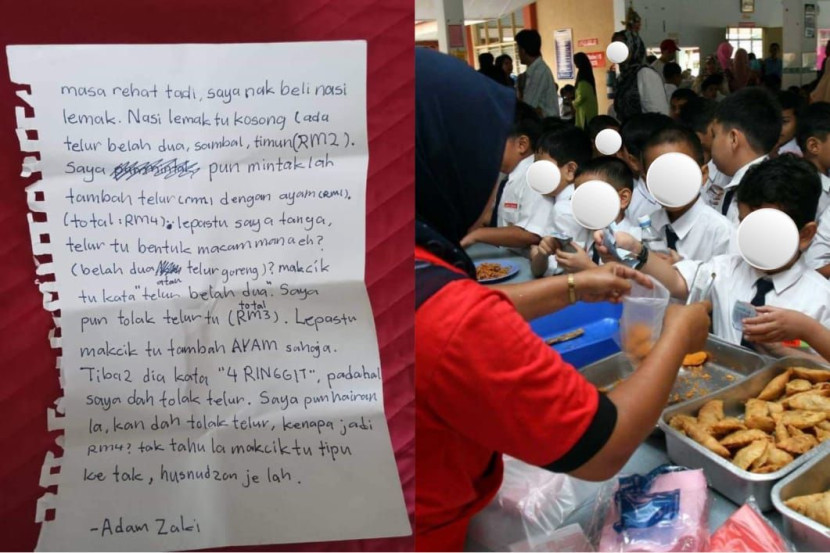 masa rehat tadi, saya nak beli nasi
lemak. Nasi lemak tu kosong (ada
telur belah dua, sambal, timun(RM2).
Saya pun mintak lah
tambah telur(RM1) dengan ayam(RM1).
(total:RM4). lepastu saya tanya,
telur tu bentuk macam mana eh?
(belah dua atau telur goreng)? makcik
tu kata "telur belah dua". Saya
pun tolak telur tu (total RM3). Lepastu
makcik tu tambah AYAM sahaja.
Tiba2 dia kata "4 RINGGIT", padahal
saya dah tolak telur. Saya pun hairan
la, kan dah tolak telur, kenapa jadi
RM4? tak tahu la makcik tu tipu
ke tak, husnudzon je lah.
-Adam Zaki